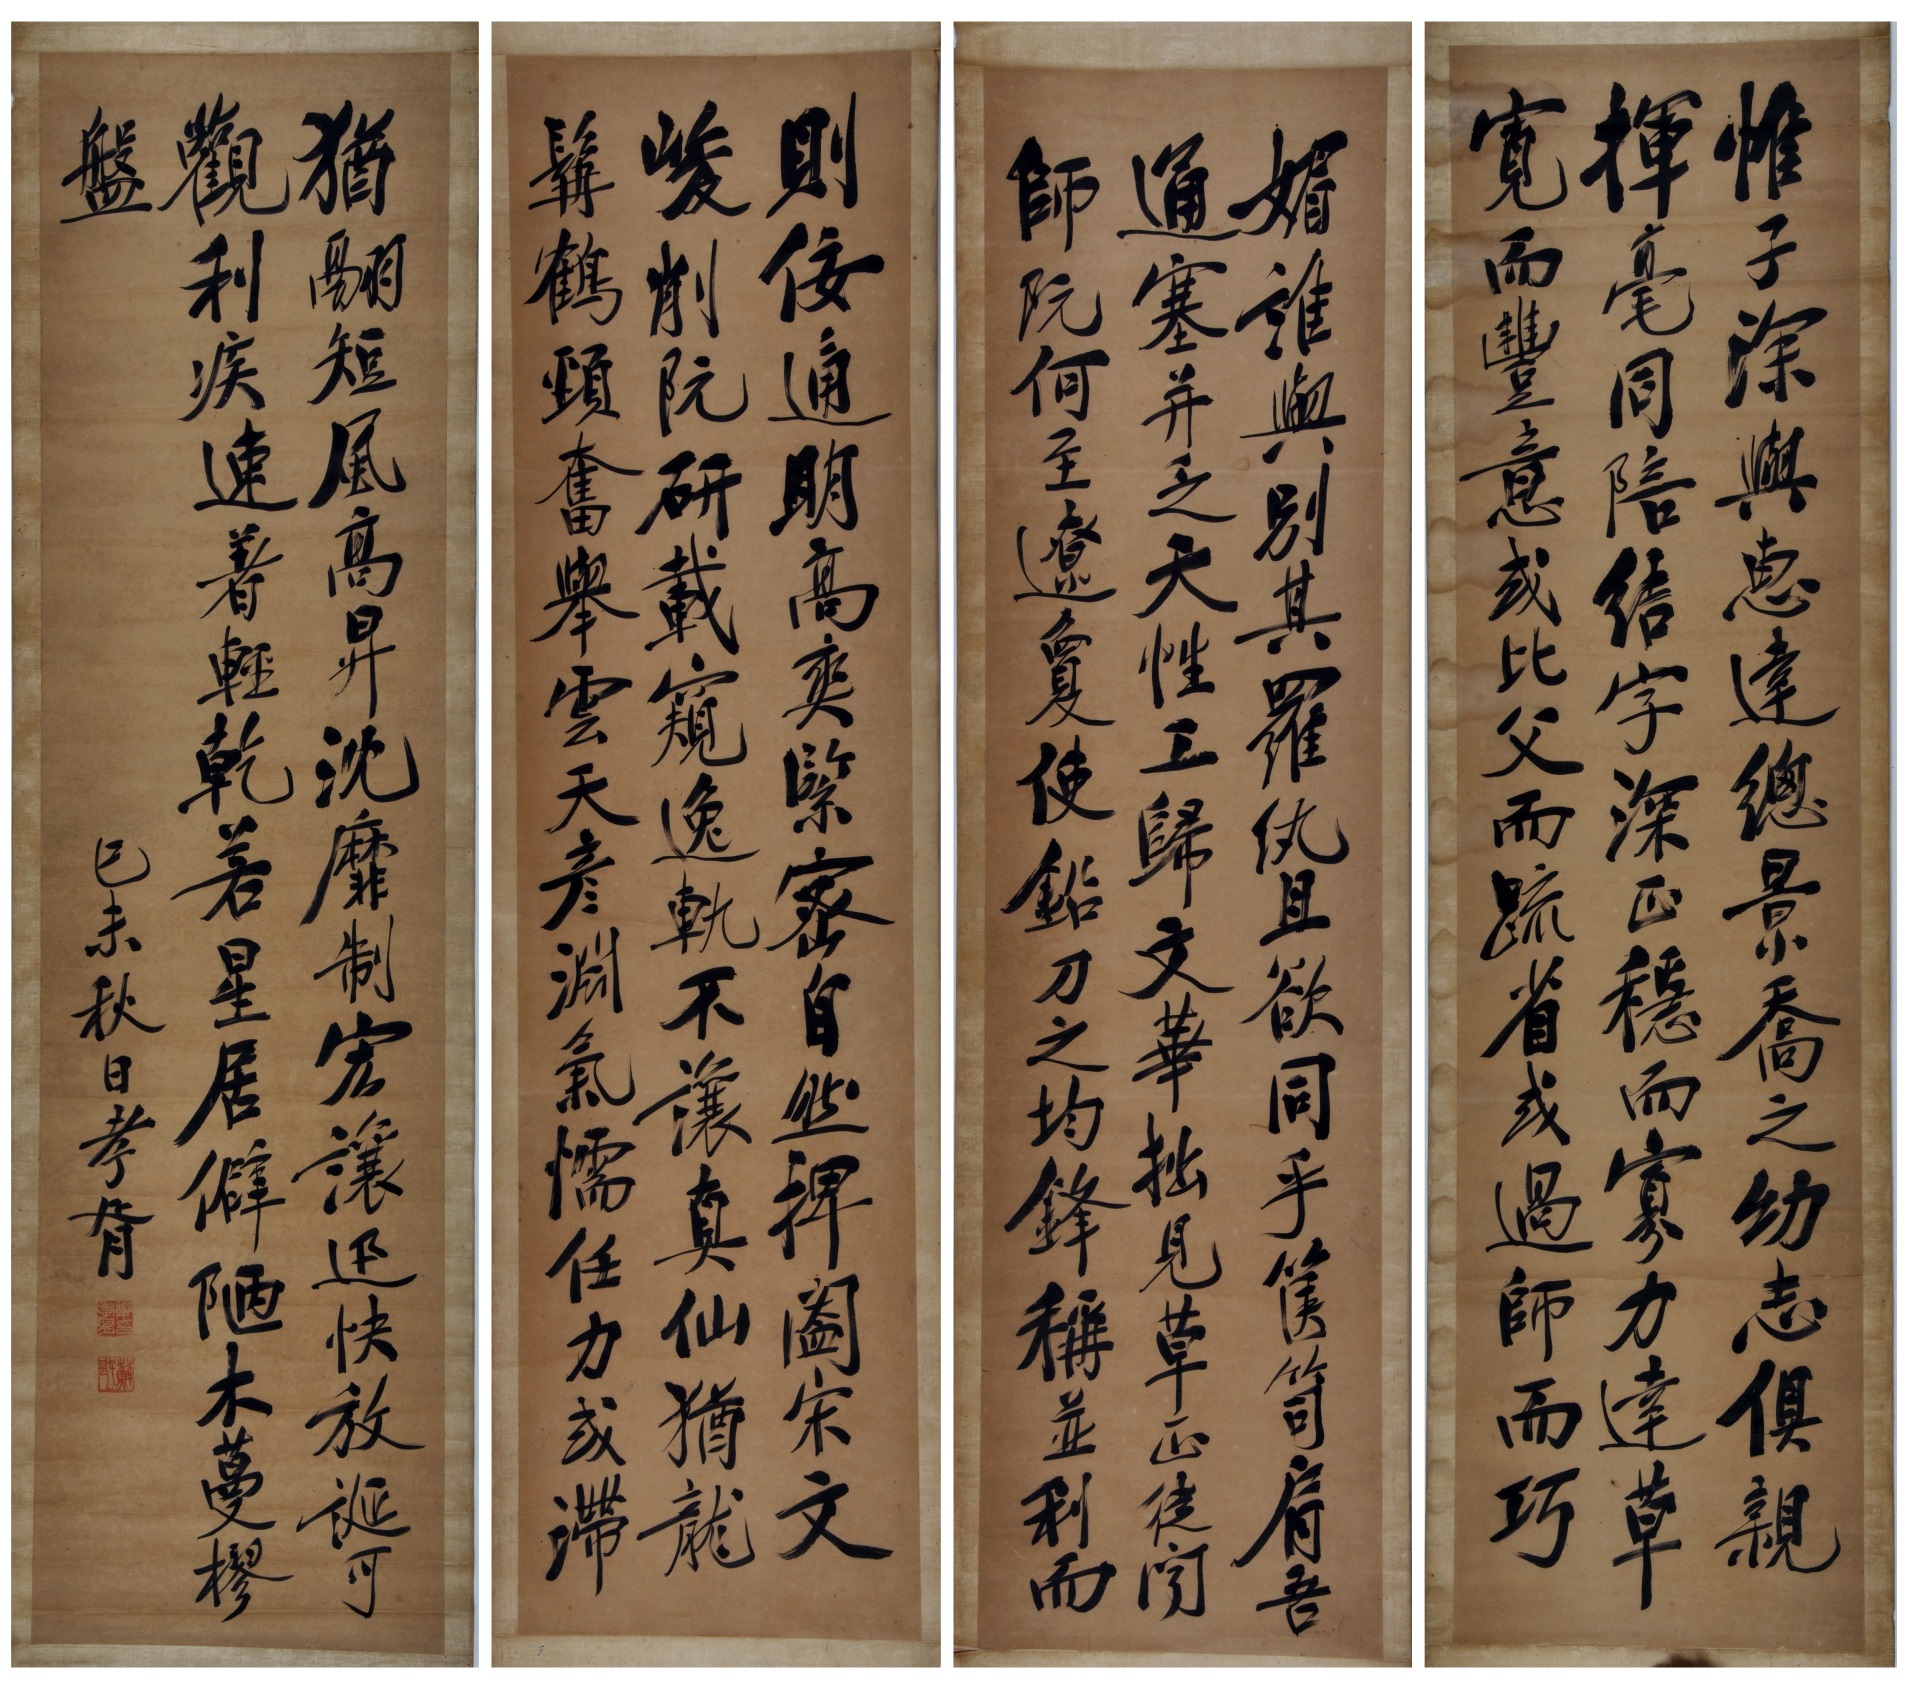 惟子深與惠達總景喬之幼志俱親
揮毫同陪結字深正穩而寡力達草
寬而豐意或比父而疏省或過師而巧
媚誰與別其羅紈且欲同乎篋笥肩吾
通塞并乏天性工歸文華拙見草正徒閱
師阮何至遼夐使鉛刀之均鋒稱並利而
則佞通明高爽緊密自然捭闔宋文
峻削阮研載窺逸軌不讓真仙猶龍
髯鶴頸奮舉雲天彥淵氣懦任力或滯
猶翮短風高昇沈靡制宏讓迅快放誕可
觀利疾速著輕乾若星居僻陋木蔓樛
盤
己未秋日孝胥